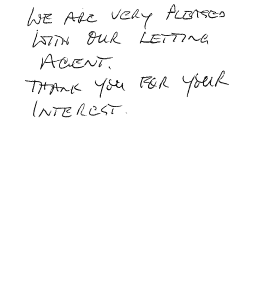 WE ARE VERY PLEASED
WITH OUR LETTING
AGENT.
THANK YOU FOR YOUR
INTEREST.